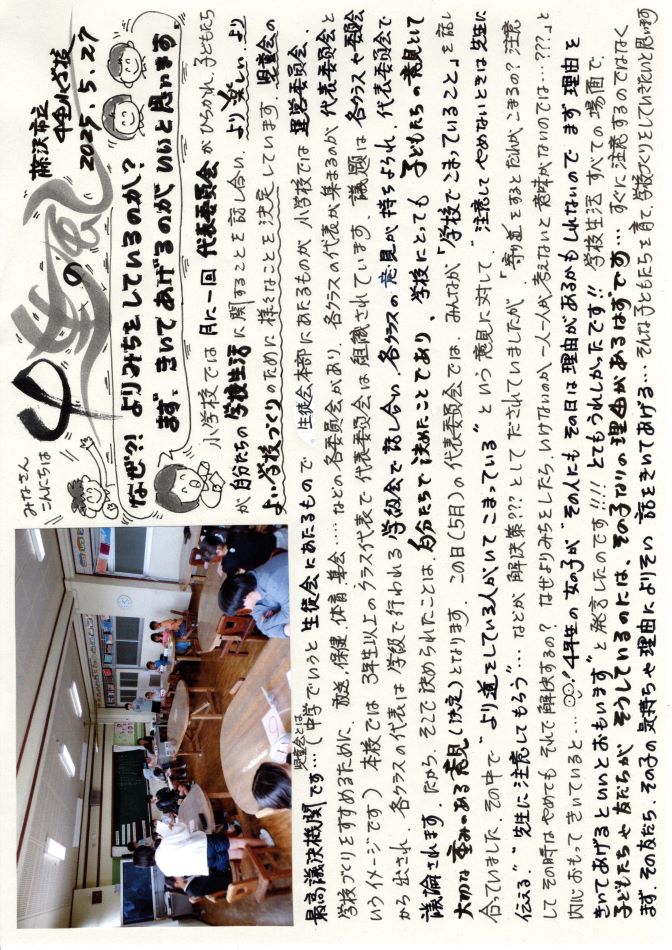 みなさん
こんにちは
の風
藤沢市立
小学校
2025.5.27
なぜ?! よりみちをしているのか?
まず、きいてあげるのがいいと思います。
小学校では 月に一回 代表委員会 がひらかれ、子どもたち
が 自分たちの 学校生活 に関することを 話し合い、より 楽しい、より
よい学校づくり のために 様々なことを 決定しています 児童会の
児童会とは
最高議決機関です…(中学でいうと 生徒会にあたるもので 生徒会本部にあたるものが 小学校では 運営委員会、
学校づくりをすすめるために、放送、保健、体育、集会……などの 各委員会があり、各クラスの代表が集まるのが 代表委員会と
いうイメージです) 本校では 3年生以上のクラス代表で 代表委員会は 組織されています 議題は 各クラスや委員会
から出され、各クラスの代表は 学級で行われる 学級会で話し合い、各クラスの意見が 持ちよられ、代表委員会で
議論されます。だから、そこで決められたことは、自分たちで決めたことであり、学校にとっても 子どもたちの意見として
大切な 重みのある意見(決定)となります。この日(5日)の代表委員会では、みんなが「学校でこまっていること」を話し
合っていました、その中で "より道をしている人がいてこまっている" という意見に対して、"注意してやめないときは 先生に
伝える"、"先生に注意してもらう"… などが 解決策???として だされていましたが、「寄り道」をするとだれがこまるの? 注意
してその時はやめても それで解決するの? なぜよりみちをしたら、いけないのか 一人一人が考えないと意味がないのでは…???」と
内心おもって きいていると…! 4年生の女の子が "その人にもその日は理由があるかもしれないので まず理由を
きいてあげるといいとおもいます" と発言したのです!!!! とてもうれしかったです!! 学校生活 すべての場面で、
子どもたちや友だちが そうしているのには、その子なりの理由があるはずです… すぐに注意するのではなく
まず、その友だち、その子の気持ちや理由によりそい 話をきいてあげる…そんな子どもたちを育て、学校づくりとしていきたいと思います